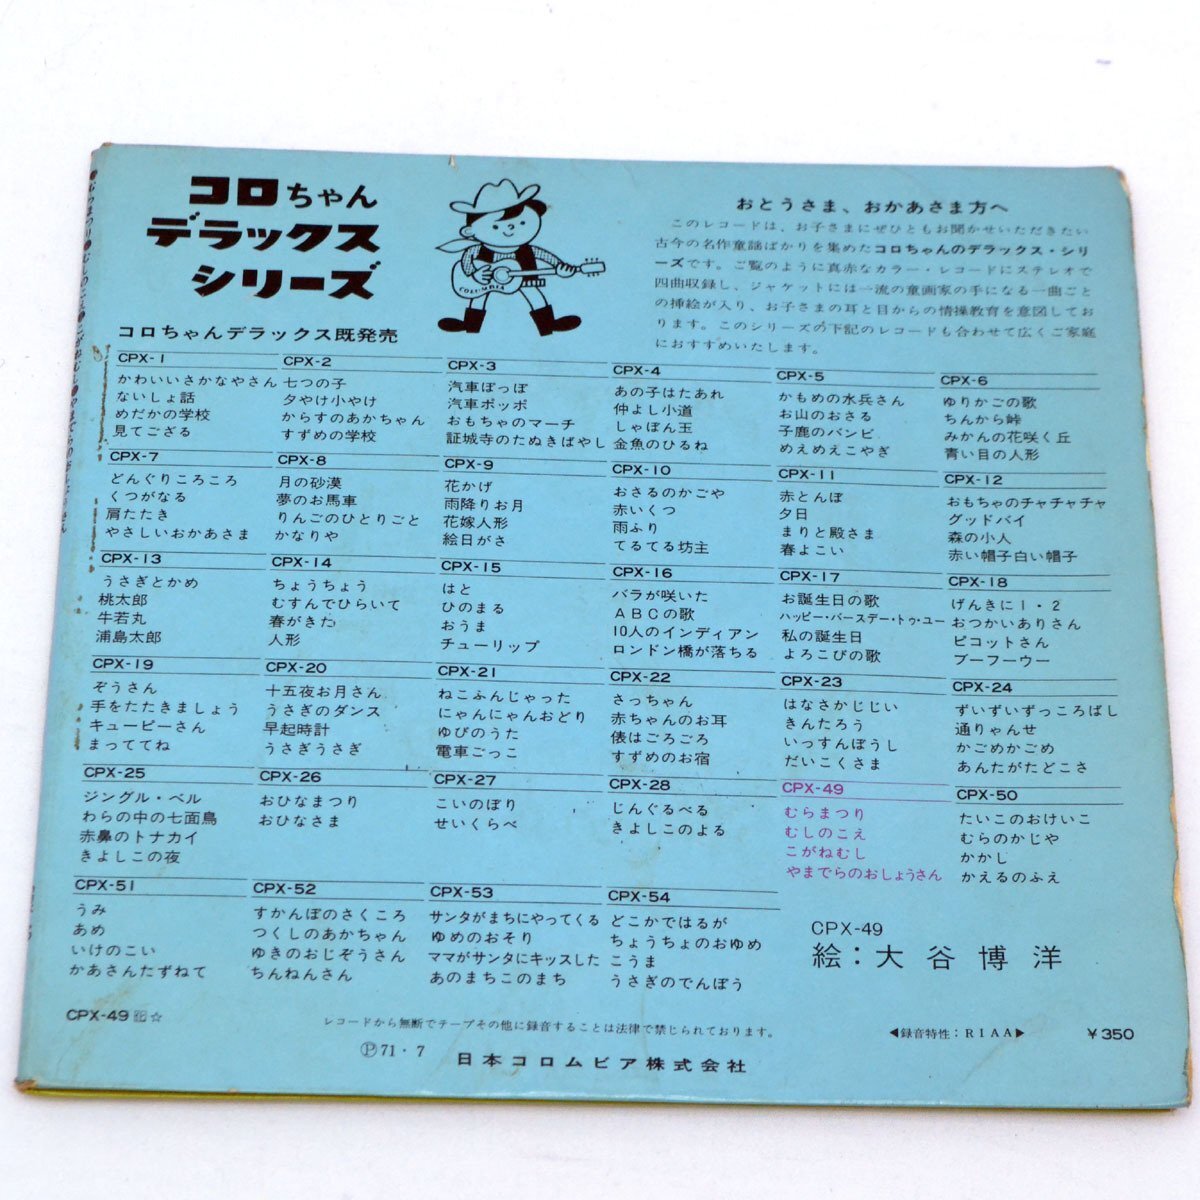 コロちゃん
デラックス
シリーズ
COLUMBIA
コロちゃんデラックス既発売
おとうさま、おかあさま方へ
このレコードは、お子さまにぜひともお聞かせいただきたい
古今の名作童謡ばかりを集めたコロちゃんのデラックス・シリ
ーズです。ご覧のように真赤なカラー・レコードにステレオで
四曲収録し、ジャケットには一流の童画家の手になる一曲ごと
の挿絵が入り、お子さまの耳と目からの情操教育を意図してお
ります。このシリーズの下記のレコードも合わせて広くご家庭
におすすめいたします。
CPX-1
かわいいさかなやさん
ないしょ話
めだかの学校
見てござる
CPX-2
七つの子
夕やけ小やけ
からすのあかちゃん
すずめの学校
CPX-3
汽車ぽっぽ
汽車ポッポ
おもちゃのマーチ
証城寺のたぬきばやし
CPX-4
あの子はたあれ
仲よし小道
しゃぼん玉
金魚のひるね
CPX-5
かもめの水兵さん
お山のおさる
子鹿のバンビ
めえめえこやぎ
CPX-6
ゆりかごの歌
ちんから峠
みかんの花咲く丘
青い目の人形
CPX-7
どんぐりころころ
くつがなる
肩たたき
やさしいおかあさま
CPX-8
月の砂漠
夢のお馬車
りんごのひとりごと
かなりや
CPX-9
花かげ
雨降りお月
花嫁人形
絵日がさ
CPX-10
おさるのかごや
赤いくつ
雨ふり
てるてる坊主
CPX-11
赤とんぼ
夕日
まりと殿さま
春よこい
CPX-12
おもちゃのチャチャチャ
グッドバイ
森の小人
赤い帽子白い帽子
CPX-13
うさぎとかめ
桃太郎
牛若丸
浦島太郎
CPX-14
ちょうちょう
むすんでひらいて
春がきた
人形
CPX-15
はと
ひのまる
おうま
チューリップ
CPX-16
バラが咲いた
ABCの歌
10人のインディアン
ロンドン橋が落ちる
CPX-17
お誕生日の歌
ハッピー・バースデー・トゥ・ユー
私の誕生日
よろこびの歌
CPX-18
げんきに1・2
おつかいありさん
ピコットさん
ブーフーウー
CPX-19
ぞうさん
手をたたきましょう
キューピーさん
まっててね
CPX-20
十五夜お月さん
うさぎのダンス
早起時計
うさぎうさぎ
CPX-21
ねこふんじゃった
にゃんにゃんおどり
ゆびのうた
電車ごっこ
CPX-22
さっちゃん
赤ちゃんのお耳
俵はごろごろ
すずめのお宿
CPX-23
はなさかじじい
きんたろう
いっすんぼうし
だいこくさま
CPX-24
ずいずいずっころばし
通りゃんせ
かごめかごめ
あんたがたどこさ
CPX-25
ジングル・ベル
わらの中の七面鳥
赤鼻のトナカイ
きよしこの夜
CPX-26
おひなまつり
おひなさま
CPX-27
こいのぼり
せいくらべ
CPX-28
じんぐるべる
きよしこのよる
CPX-49
むらまつり
むしのこえ
こがねむし
やまでらのおしょうさん
CPX-50
たいこのおけいこ
むらのかじや
かかし
かえるのふえ
CPX-51
うみ
あめ
いけのこい
かあさんたずねて
CPX-52
すかんぽのさくころ
つくしのあかちゃん
ゆきのおじぞうさん
ちんねんさん
CPX-53
サンタがまちにやってくる
ゆめのおそり
ママがサンタにキッスした
あのまちこのまち
CPX-54
どこかではるが
ちょうちょのおゆめ
こうま
うさぎのでんぽう
CPX-49
絵：大谷博洋
CPX-49 ☆
レコードから無断でテープその他に録音することは法律で禁じられております。
◀録音特性：RIAA▶
￥350
Ⓟ71・7
日本コロムビア株式会社